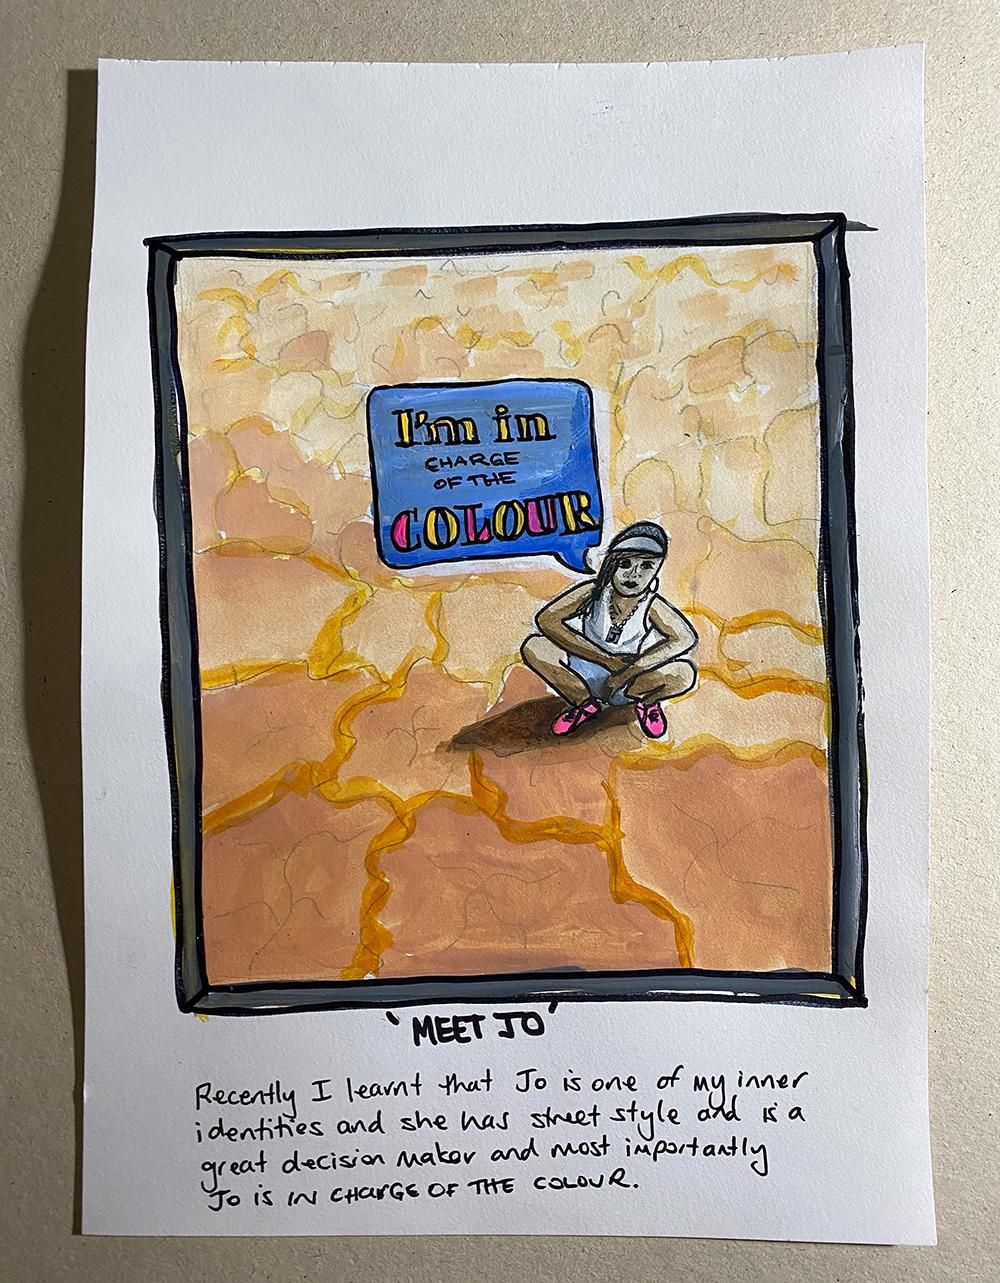 I'm in
CHARGE
OF THE
COLOUR
'MEET JO'
Recently I learnt that Jo is one of my inner
identities and she has street style and is a
great decision maker and most importantly
Jo is IN CHARGE OF THE COLOUR.